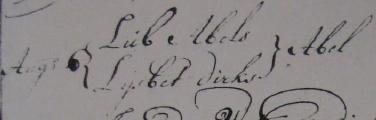 Lub Abels
Augs 6 { } Abel
Lysbet dirks